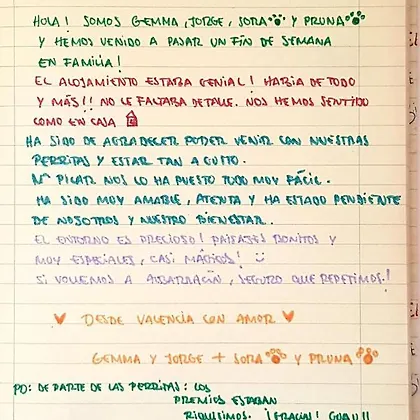 HOLA! SOMOS GEMMA, JORGE, SORA Y PRUNA
Y HEMOS VENIDO A PASAR UN FIN DE SEMANA
EN FAMILIA!
EL ALOJAMIENTO ESTABA GENIAL! HABIA DE TODO
Y MÁS!! NO LE FALTABA DETALLE. NOS HEMOS SENTIDO
COMO EN CASA
HA SIDO DE AGRADECER PODER VENIR CON NUESTRAS
PERRITAS Y ESTAR TAN A GUSTO.
Mª PILAR NOS LO HA PUESTO TODO MUY FÁCIL.
HA SIDO MUY AMABLE, ATENTA Y HA ESTADO PENDIENTE
DE NOSOTROS Y NUESTRO BIENESTAR.
EL ENTORNO ES PRECIOSO! PAISAJES BONITOS Y
MUY ESPECIALES, CASI MÁGICOS! :)
SI VOLVEMOS A ALBARRACÍN, SEGURO QUE REPETIMOS!
DESDE VALENCIA CON AMOR
GEMMA Y JORGE + SORA Y PRUNA
PD: DE PARTE DE LAS PERRITAS: LOS
PREMIOS ESTABAN
RIQUÍSIMOS. ¡GRACIAS!